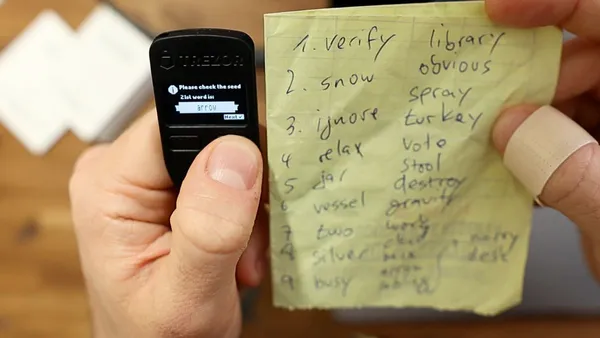 TREZOR
Please check the seed
21st word is:
array
Next
1. verify library
2. snow obvious
spray
3. ignore turkey
4 relax vote
stool
5 jar destroy
6 vessel gravity
7 two work
8 silver
desk
9 busy